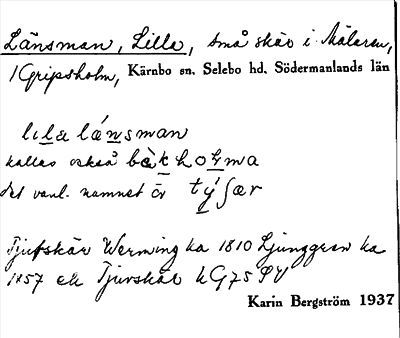 Länsman, Lilla, små skär i Mälaren,
/Gripsholm, Kärnbo sn. Selebo hd. Södermanlands län
lila länsman
kallas också bäkholma
det vanl. namnet är tyʃær
Tjufskär Werming ka 1810 Ljunggren ka
1857 ek Tjurskär hG75 SV
Karin Bergström 1937